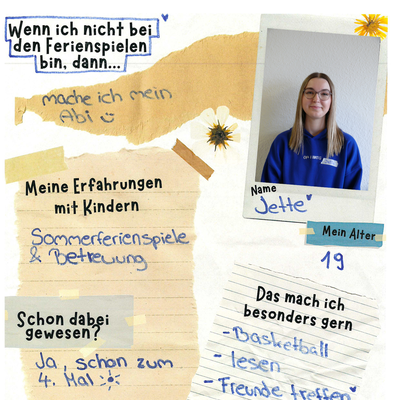 Wenn ich nicht bei
den Ferienspielen
bin, dann...
mache ich mein
Abi
Name
Jette
Mein Alter
19
Meine Erfahrungen
mit Kindern
Sommerferienspiele
& Betreuung
Schon dabei
gewesen?
Ja, schon zum
4. Mal
Das mach ich
besonders gern
- Basketball
- lesen
- Freunde treffen